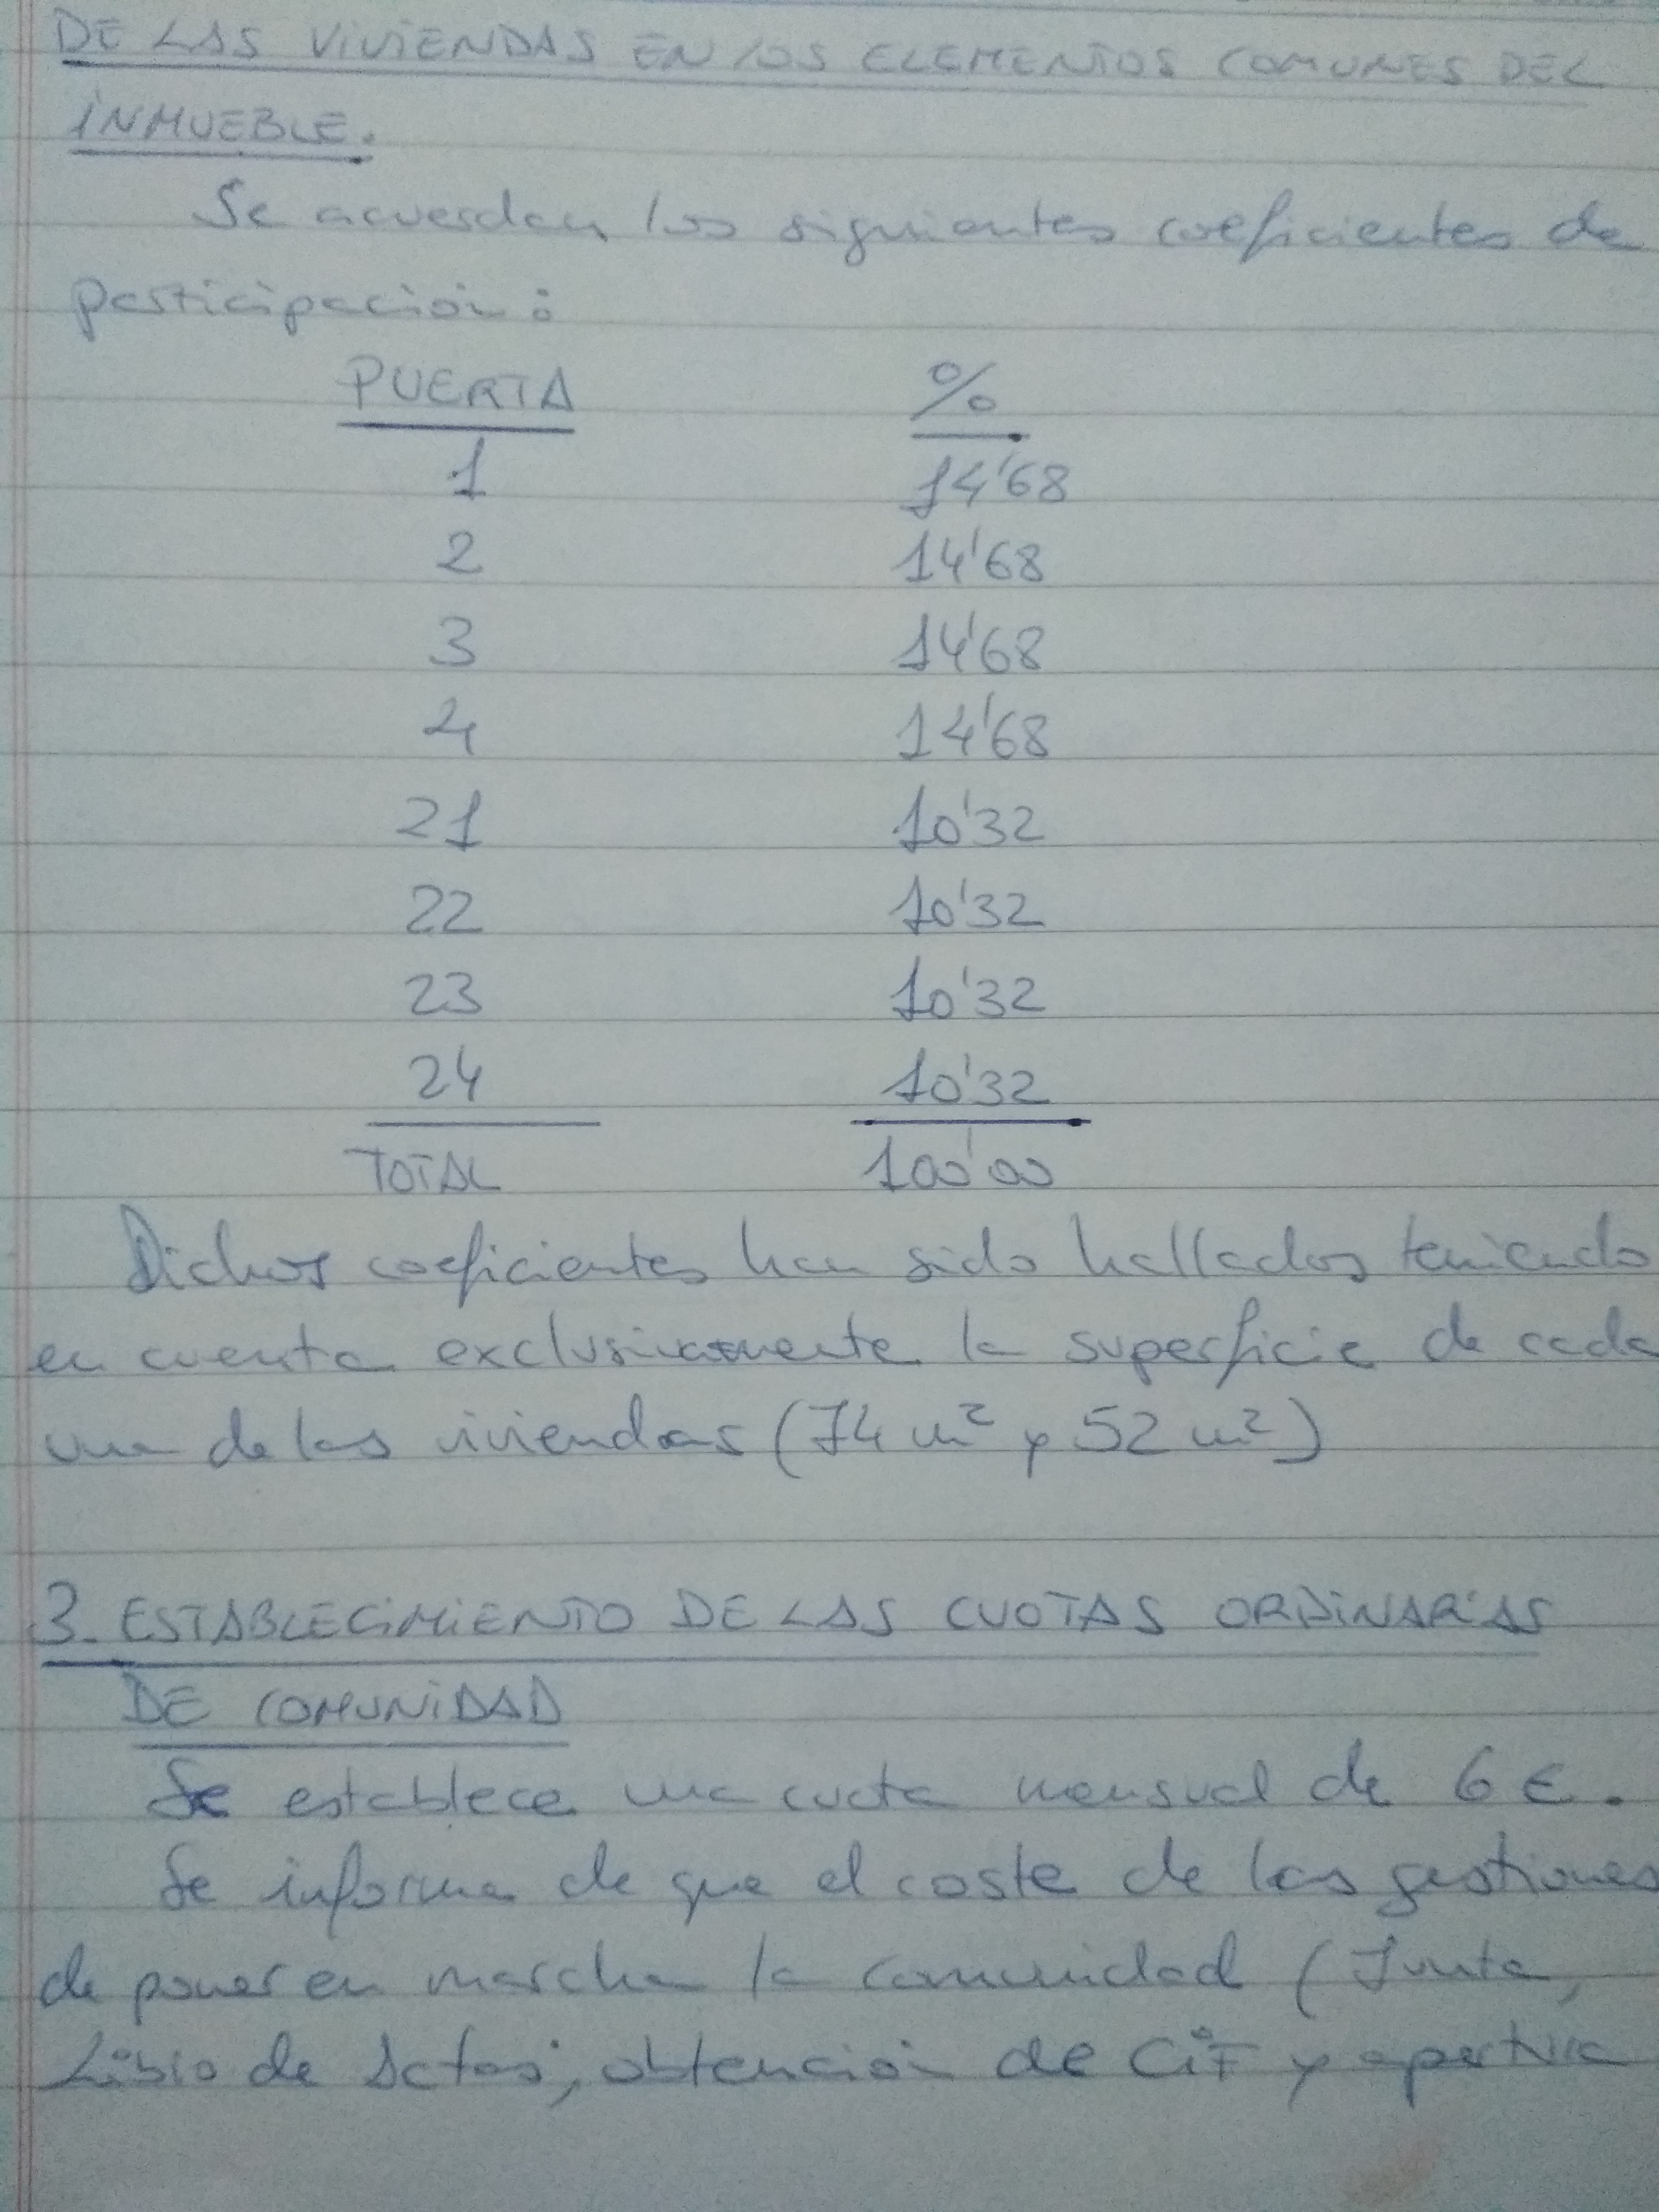 DE LAS VIVIENDAS EN LOS ELEMENTOS COMUNES DEL
INMUEBLE.
Se acuerdan los siguientes coeficientes de
participación:
PUERTA %
1 14'68
2 14'68
3 14'68
4 14'68
21 10'32
22 10'32
23 10'32
24 10'32
TOTAL 100'00
Dichos coeficientes han sido hallados teniendo
en cuenta exclusivamente la superficie de cada
una de las viviendas (74 m² y 52 m²)
3. ESTABLECIMIENTO DE LAS CUOTAS ORDINARIAS
DE COMUNIDAD
Se establece una cuota mensual de 6 €.
Se informa de que el coste de las gestiones
de poner en marcha la comunidad (Junta,
Libro de Actas, obtención de CIF y apertura